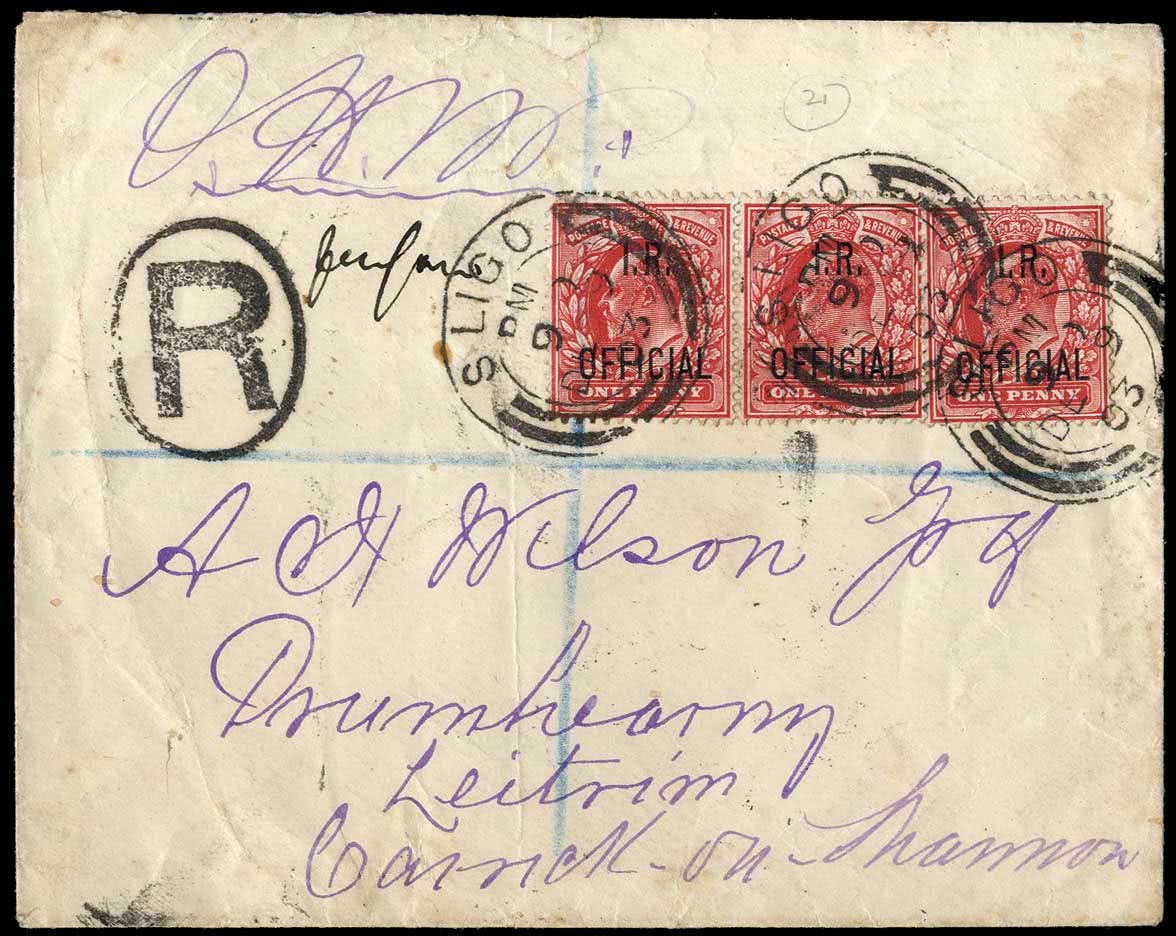 O. H. M. S.
21
R
SLIGO
PM
9 DE
03
POSTAGE & REVENUE
I.R.
OFFICIAL
ONE PENNY
SLIGO
PM
9 DE
03
POSTAGE & REVENUE
I.R.
OFFICIAL
ONE PENNY
SLIGO
PM
9 DE
03
POSTAGE & REVENUE
I.R.
OFFICIAL
ONE PENNY
A H Wilson
Drumkearny
Leitrim
Carrick-on-Shannon